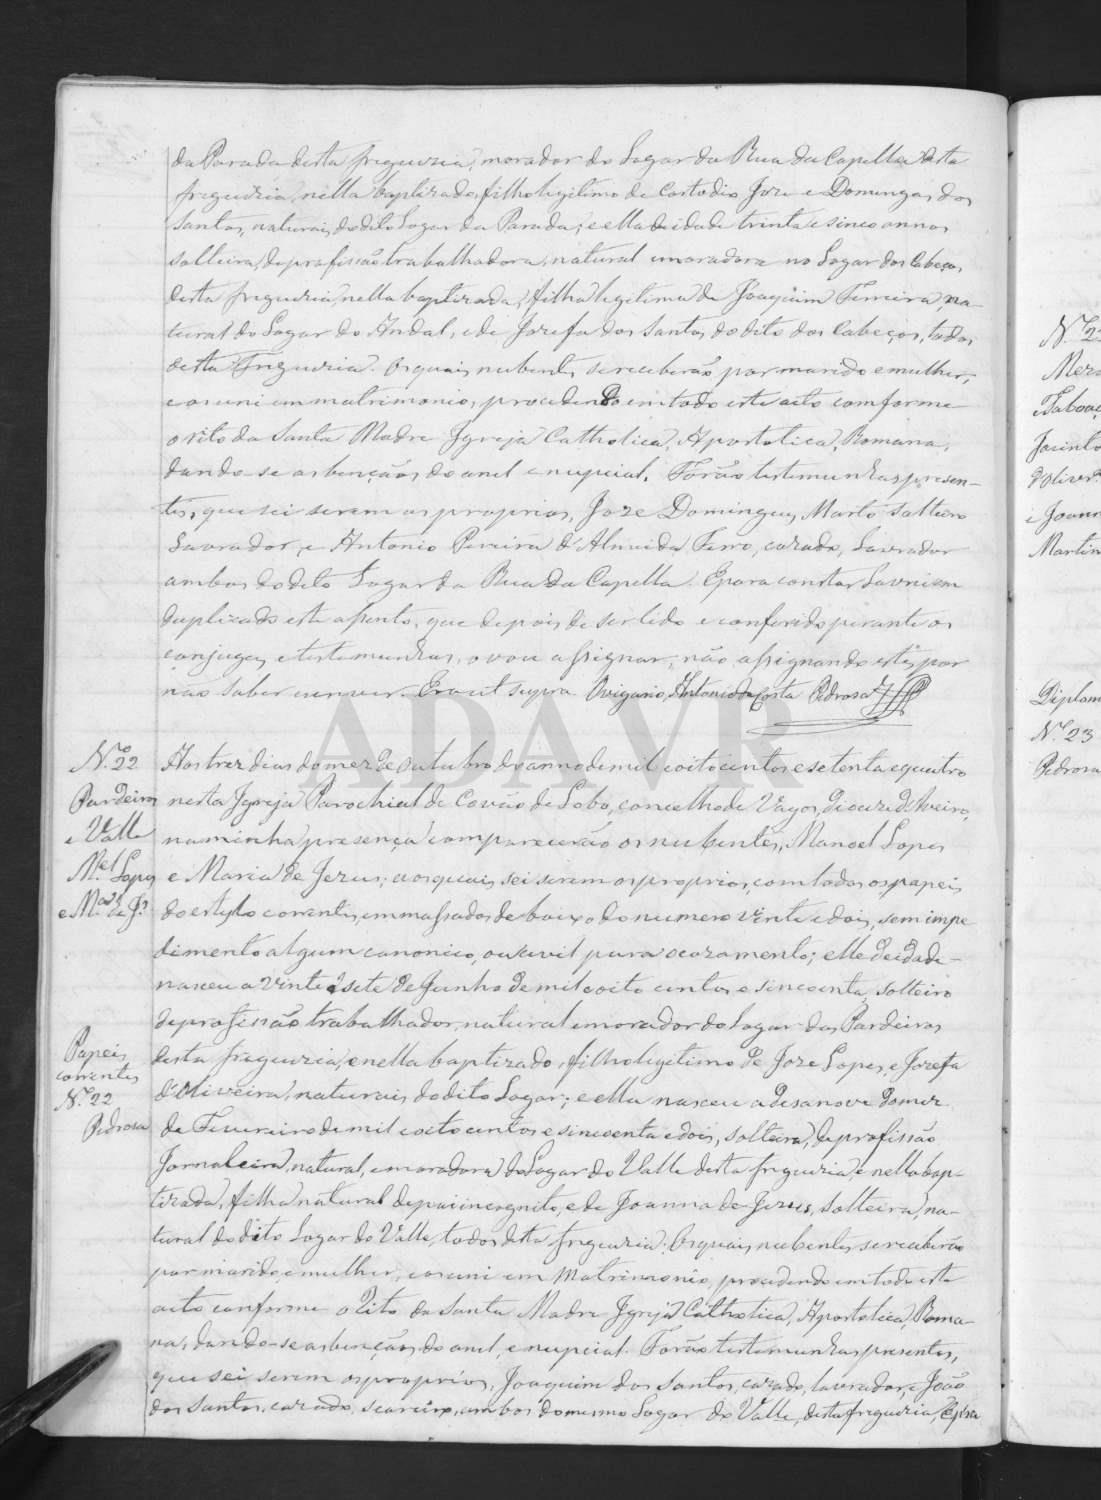 da Parada desta freguezia, morador do Lugar da Rua da Capella desta
freguezia, nella baptizado, filho legitimo de Costodio Joze e Domingas dos
Santos, naturais do dito Lugar da Parada; e ella de idade trinta e sinco annos
solteira, de profissão trabalhadora, natural e moradora no Lugar dos Cabeços,
desta freguezia, nella baptizada, filha legitima de Joaquim Ferreira, na-
tural do Lugar do Andal, e de Jozefa dos Santos, do dito dos Cabeços, todos
desta Freguezia. Os quais nubentes se receberão por marido e mulher,
e os uni em matrimonio, procedendo em todo este acto comforme
o rito da Santa Madre Igreja Catholica, Apostolica, Romana,
dando-se as bençãos do anel e nupcial. Forão testemunhas presen-
tes, que sei serem os proprios, Joze Domingues Marto solteiro
Lavrador, e Antonio Pereira d'Almeida Ferro, cazado, Lavrador
ambos do dito Lugar da Rua da Capella. E para constar Lavrei em
duplicado este assento, que depois de ser lido e conferido perante os
conjuges e testemunhas, o vou assignar, não assignando estes por
não saber escrever. Era ut supra. O vigario, Antonio da Costa Pedrosa
N.º 22
Pardeiros
e Valle
M.el Lopes
e M.a de J.s
Aos trez dias do mez de Outubro do anno de mil e oito centos e setenta e quatro
nesta Igreja Parochial de Covão do Lobo, concelho de Vagos, Dioceze d'Aveiro,
na minha presença comparecerão os nubentes, Manoel Lopes
e Maria de Jezus; os quais sei serem os proprios, com todos os papeis
do estylo correntes, emmassados debaixo do numero vinte e dois, sem impe
dimento algum canonico, ou civil para o cazamento; elle de idade-
nasceu a vinte e sete de Junho de mil e oito centos e sincoenta, solteiro
de profissão trabalhador, natural e morador do Lugar dos Pardeiros
desta freguezia, e nella baptizado, filho legitimo de Joze Lopes, e Jozefa
d'Oliveira, naturais do dito Lugar; e ella nasceu a desanove do mez
de Fevereiro de mil e oito centos e sincoenta e dois, solteira, de profissão
Jornaleira, natural, e moradora do Lugar do Valle desta freguezia, e nella bap-
tizada, filha natural de pai incognito, e de Joanna de Jezus, solteira, na-
tural do dito Lugar do Valle, todos desta freguezia: Os quais nubentes se receberão
por marido e mulher, e os uni em Matrimonio, procedendo em todo este
acto conforme o Rito da Santa Madre Igreja Catholica, Apostolica, Roma-
na, dando-se as bençãos do anel, e nupcial. Forão testemunhas presentes,
que sei, serem os proprios, Joaquim dos Santos, cazado, lavrador, e João
dos Santos, cazado, seareiro, ambos do mesmo Lugar do Valle, desta freguezia, E para
Papeis
correntes
N.º 22
Pedrosa
Joanna
Martin
Diplom
N.º 23
Pedrosa
ADAVR